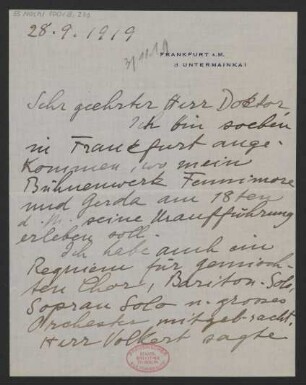 28.9.1919
FRANKFURT a.M.
UNTERMAINKAI
Sehr geehrter Herr Doktor
Ich bin soeben
in Frankfurt ange-
kommen, wo mein
Bühnenwerk Fennimore
und Gerda am 18ten
d. M. seine Uraufführung
erleben soll.
Ich habe auch ein
Requiem für gemisch-
ten Chor, Bariton-Solo,
Sopran Solo u. grosses
Orchester mitgebracht.
Herr Volkert sagte